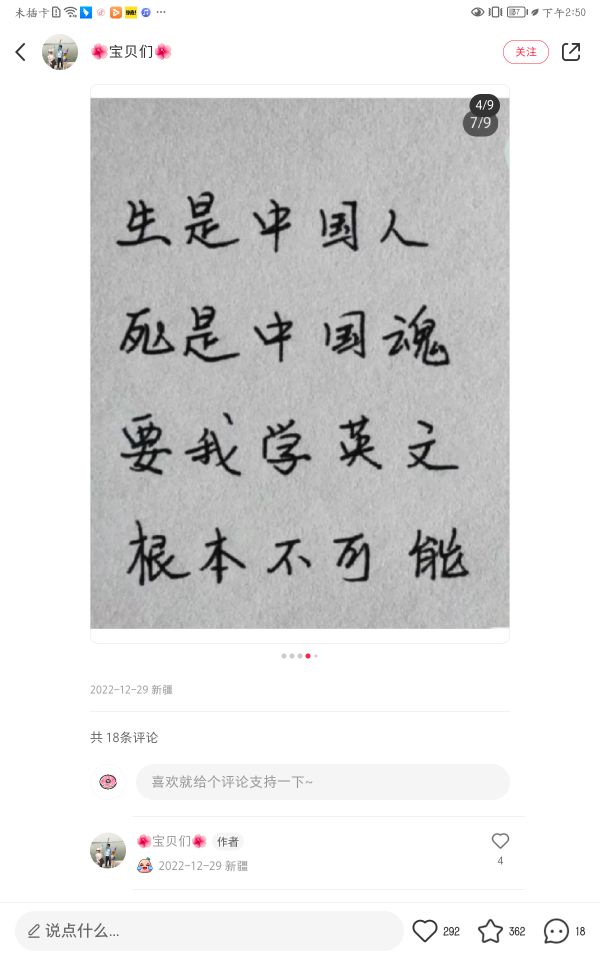 未插卡 87 下午2:50
🌺宝贝们🌺 关注
4/9
7/9
生是中国人
死是中国魂
要我学英文
根本不可能
2022-12-29 新疆
共 18条评论
喜欢就给个评论支持一下~
🌺宝贝们🌺 作者
2022-12-29 新疆
4
说点什么... 292 362 18